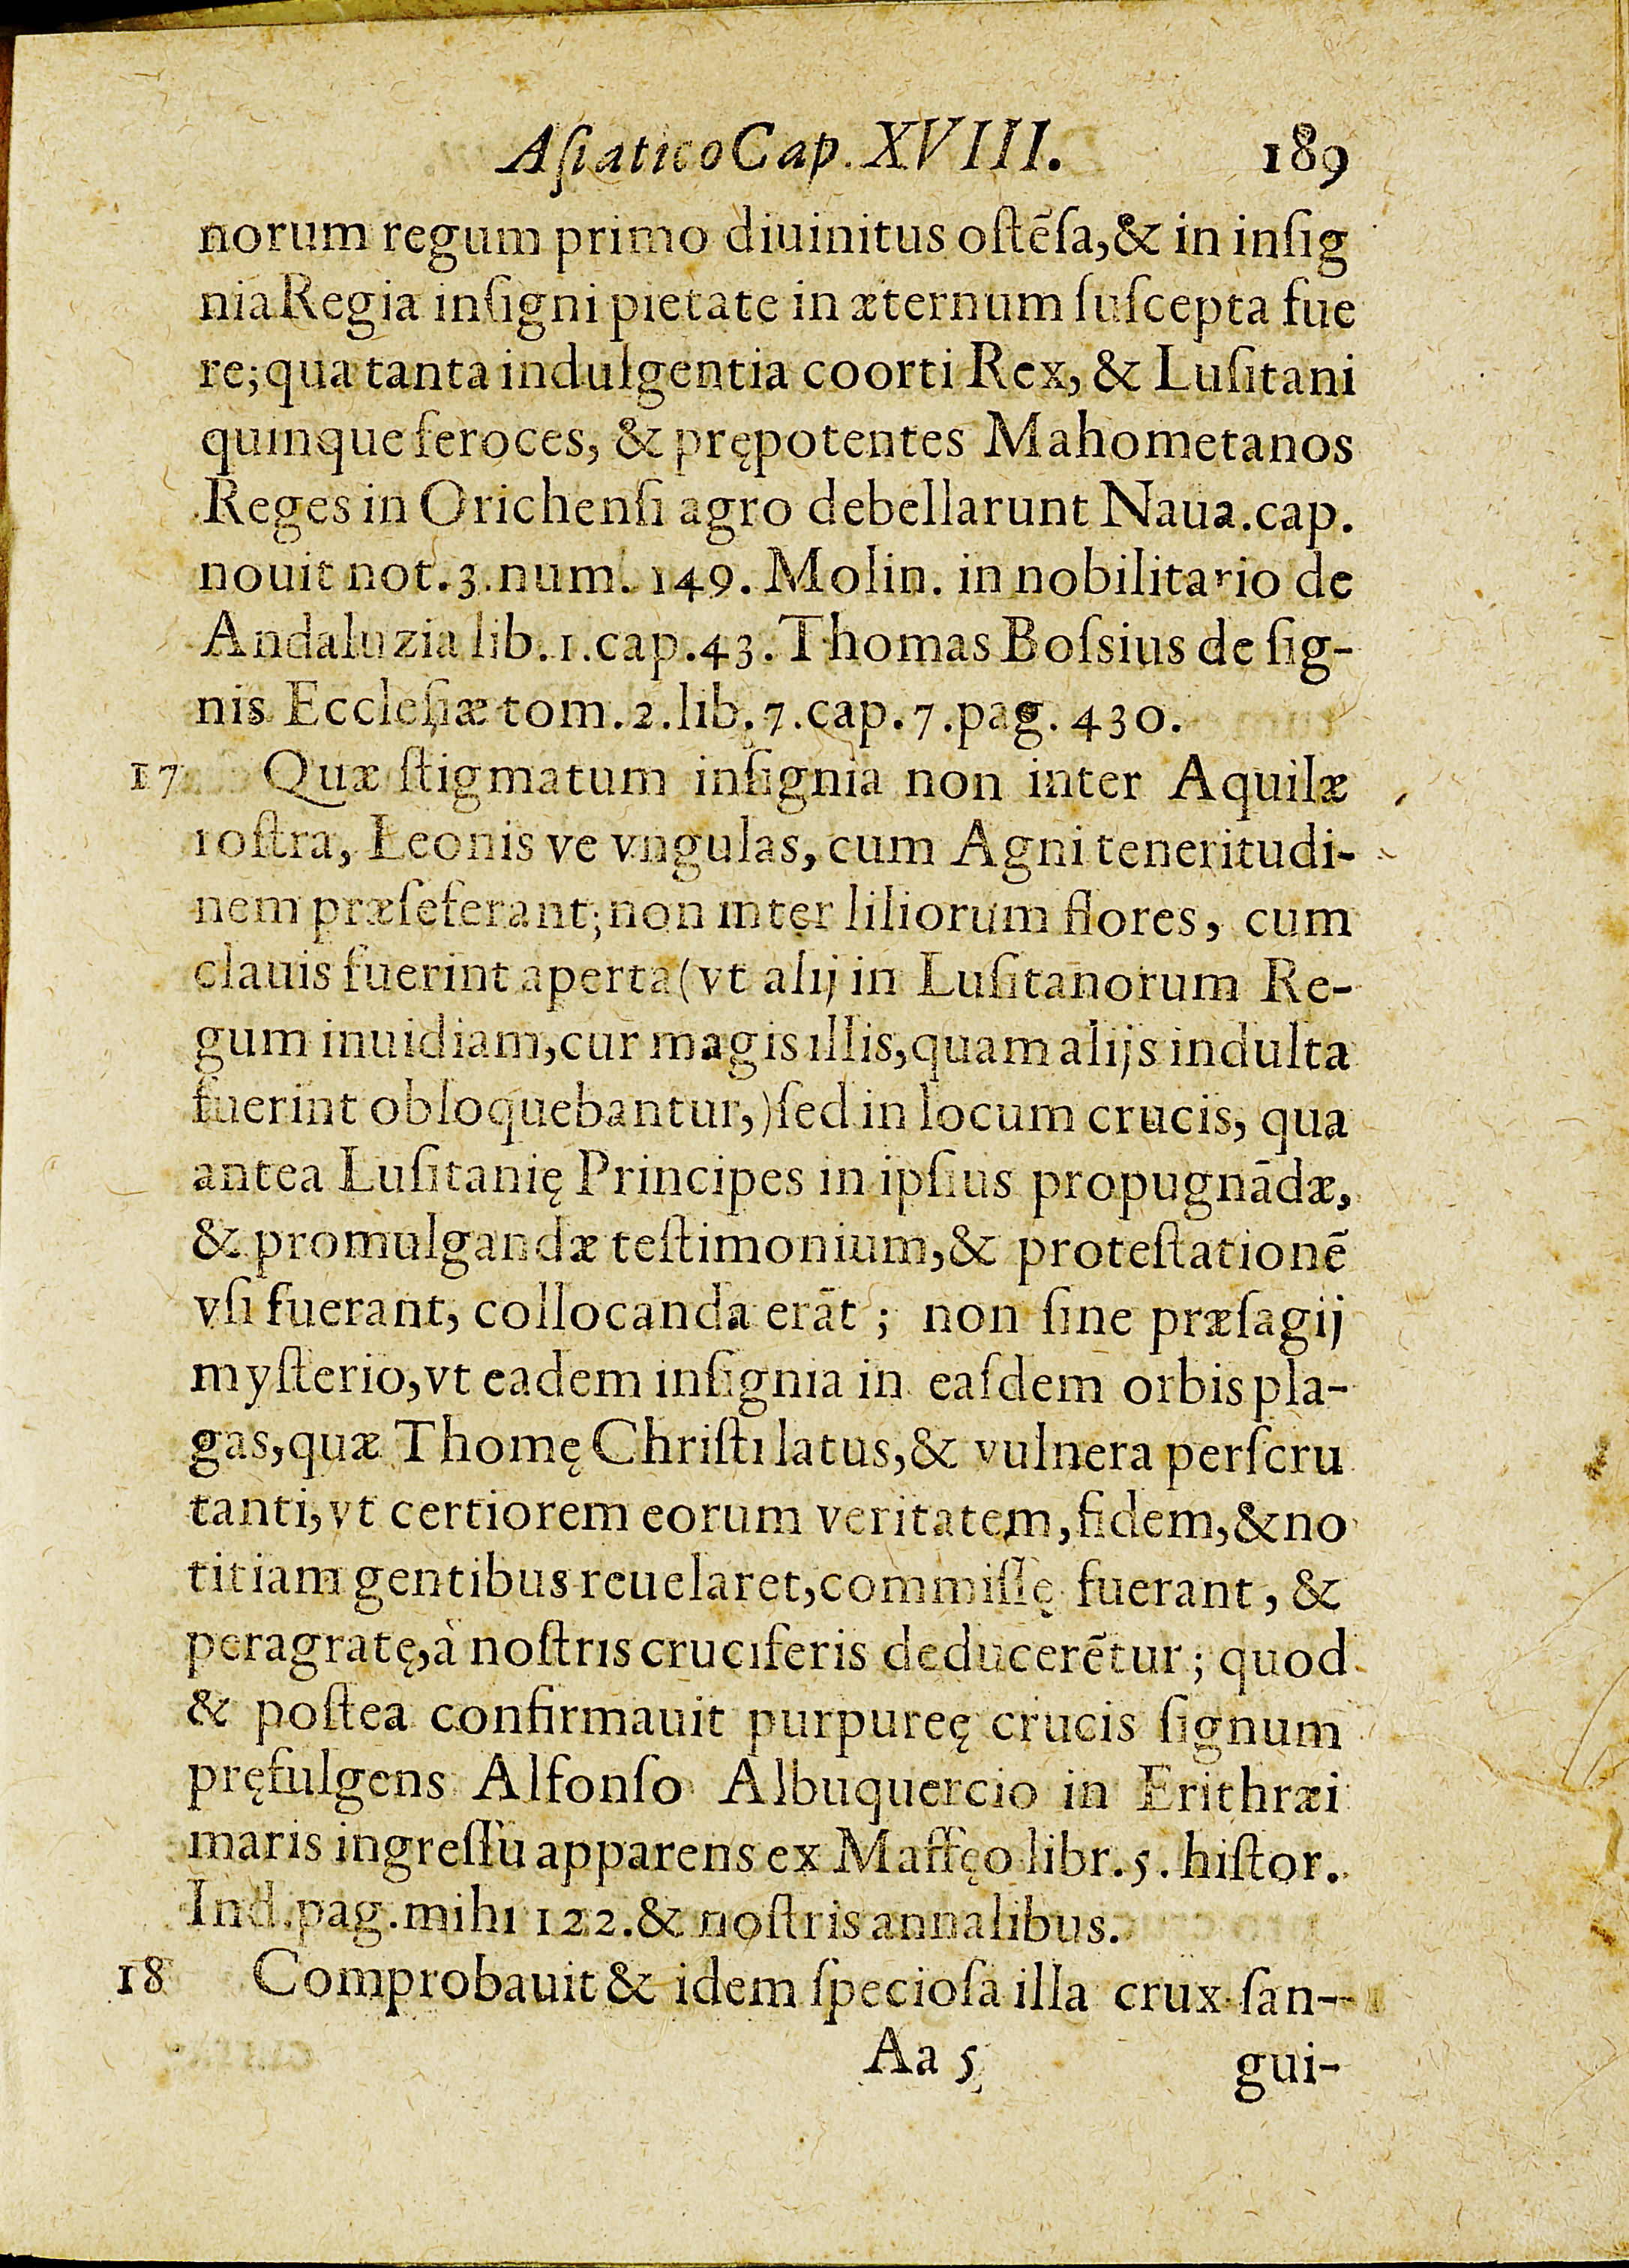 Aſiatico Cap. XVIII. 189
norum regum primo diuinitus oſtēſa,& in inſig
nia Regia inſigni pietate in æternum ſuſcepta fue
re; qua tanta indulgentia coorti Rex, & Luſitani
quinque feroces, & prępotentes Mahometanos
Reges in Orichenſi agro debellarunt Naua.cap.
nouit not.3.num. 149. Molin. in nobilitario de
Andaluzia lib.1.cap.43. Thomas Boſsius de ſig-
nis Eccleſiæ tom.2.lib.7.cap.7.pag. 430.
17 Quæ ſtigmatum inſignia non inter Aquilæ
roſtra, Leonis ve vngulas, cum Agni teneritudi-
nem præſeferant; non inter liliorum flores, cum
clauis fuerint aperta (vt alij in Luſitanorum Re-
gum inuidiam, cur magis illis, quam alijs indulta
fuerint obloquebantur,) ſed in locum crucis, qua
antea Luſitanię Principes in ipſius propugnādæ,
& promulgandæ teſtimonium,& proteſtationē
vſi fuerant, collocanda erāt ; non ſine præſagij
myſterio, vt eadem inſignia in eaſdem orbis pla-
gas, quæ Thomę Chriſti latus,& vulnera perſcru
tanti, vt certiorem eorum veritatem, fidem,& no
titiam gentibus reuelaret, commiſſę fuerant, &
peragratę, à noſtris cruciferis deducerētur; quod
& poſtea confirmauit purpureę crucis ſignum
pręfulgens Alfonſo Albuquercio in Erithræi
maris ingreſſu apparens ex Maffęo libr.5. hiſtor.
Ind.pag.mihi 122.& noſtris annalibus.
18 Comprobauit & idem ſpecioſa illa crux ſan-
Aa 5 gui-